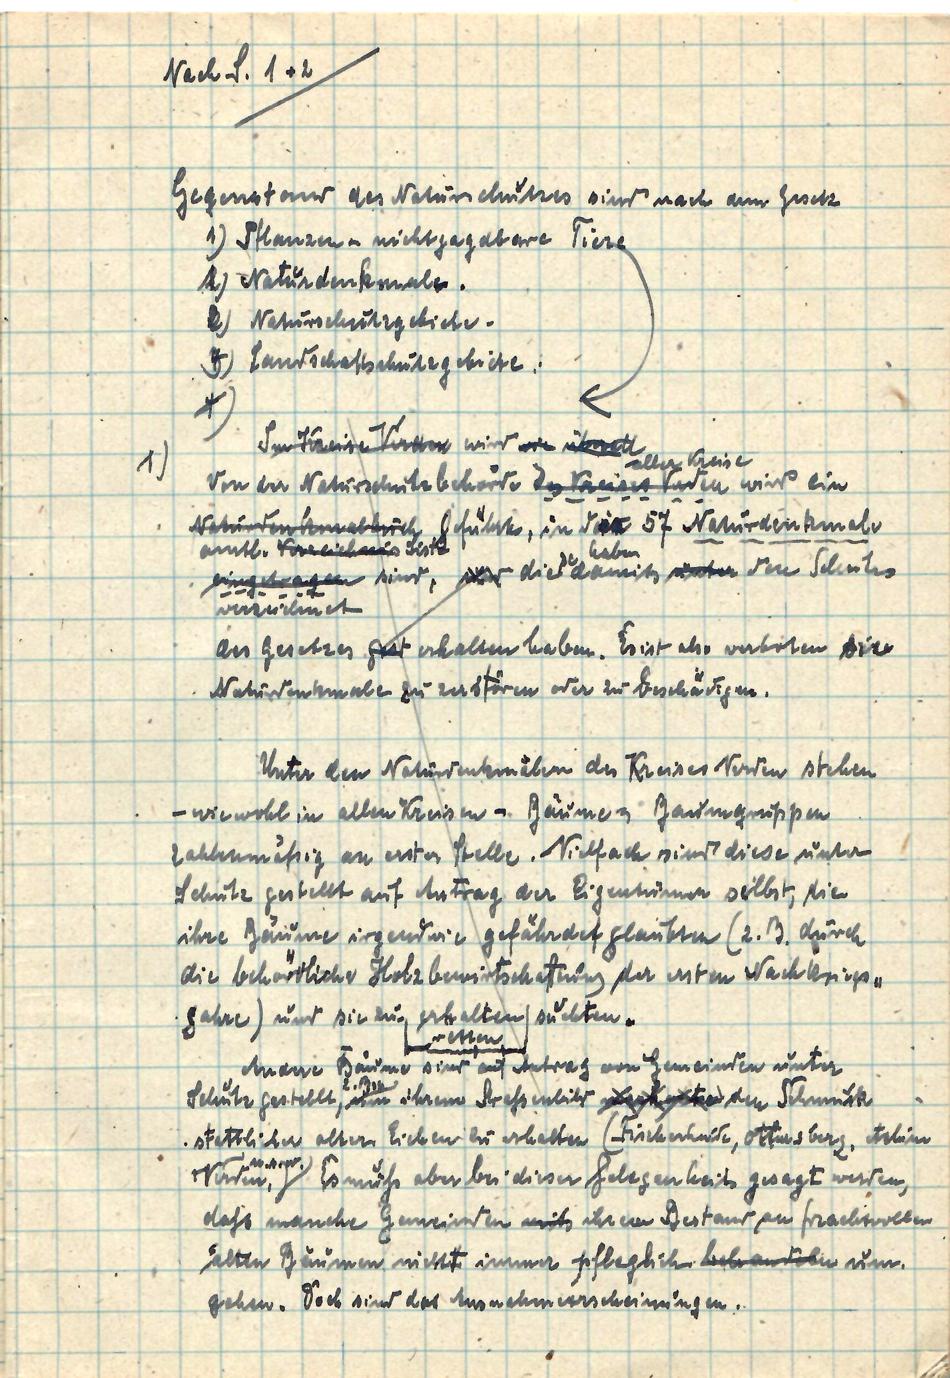 Nach S. 1 + 2
Gegenstand des Naturschutzes sind nach dem Gesetz
1) Pflanzen u nichtjagdbare Tiere
2) Naturdenkmale.
2) Naturschutzgebiete.
3) Landschaftschutzgebiete.
4)
1) Im Kreise Verden wird wie überall
aller Kreise
Von der Naturschutzbehörde des Kreises Verden wird ein
Naturdenkmalbuch geführt, in dem 57 Naturdenkmale
amtl. Verzeichnis Liste haben
eingetragen sind, die damit unter den Schutz
verzeichnet
des Gesetzes erhalten haben. Es ist also verboten
Naturdenkmale zu zerstören oder zu beschädigen.
Unter den Naturdenkmälern des Kreises Verden stehen
- wie wohl in allen Kreisen - Bäume u Baumgruppen
zahlenmäßig an erster Stelle. Vielfach sind diese unter
Schutz gestellt auf Antrag der Eigentümer selbst, die
ihre Bäume irgendwie gefährdet glaubten (z.B. durch
die behördliche Holzbewirtschaftung der ersten Nachkriegs=
jahre) und sie zu erhalten suchten.
retten
Andere Bäume sind auf Antrag von Gemeinden unter
z. B.
Schutz gestellt, um ihrem Strassenbild den Schmuck
stattlicher alter Eichen zu erhalten (Fischerhude, Ottersberg, Achim
Verden, u.s.w.) Es muß aber bei dieser Gelegenheit gesagt werden,
daß manche Gemeinden mit ihrem Bestand an prachtvollen
alten Bäumen nicht immer pfleglich behandeln um=
gehen. Doch sind das Ausnahmeerscheinungen.